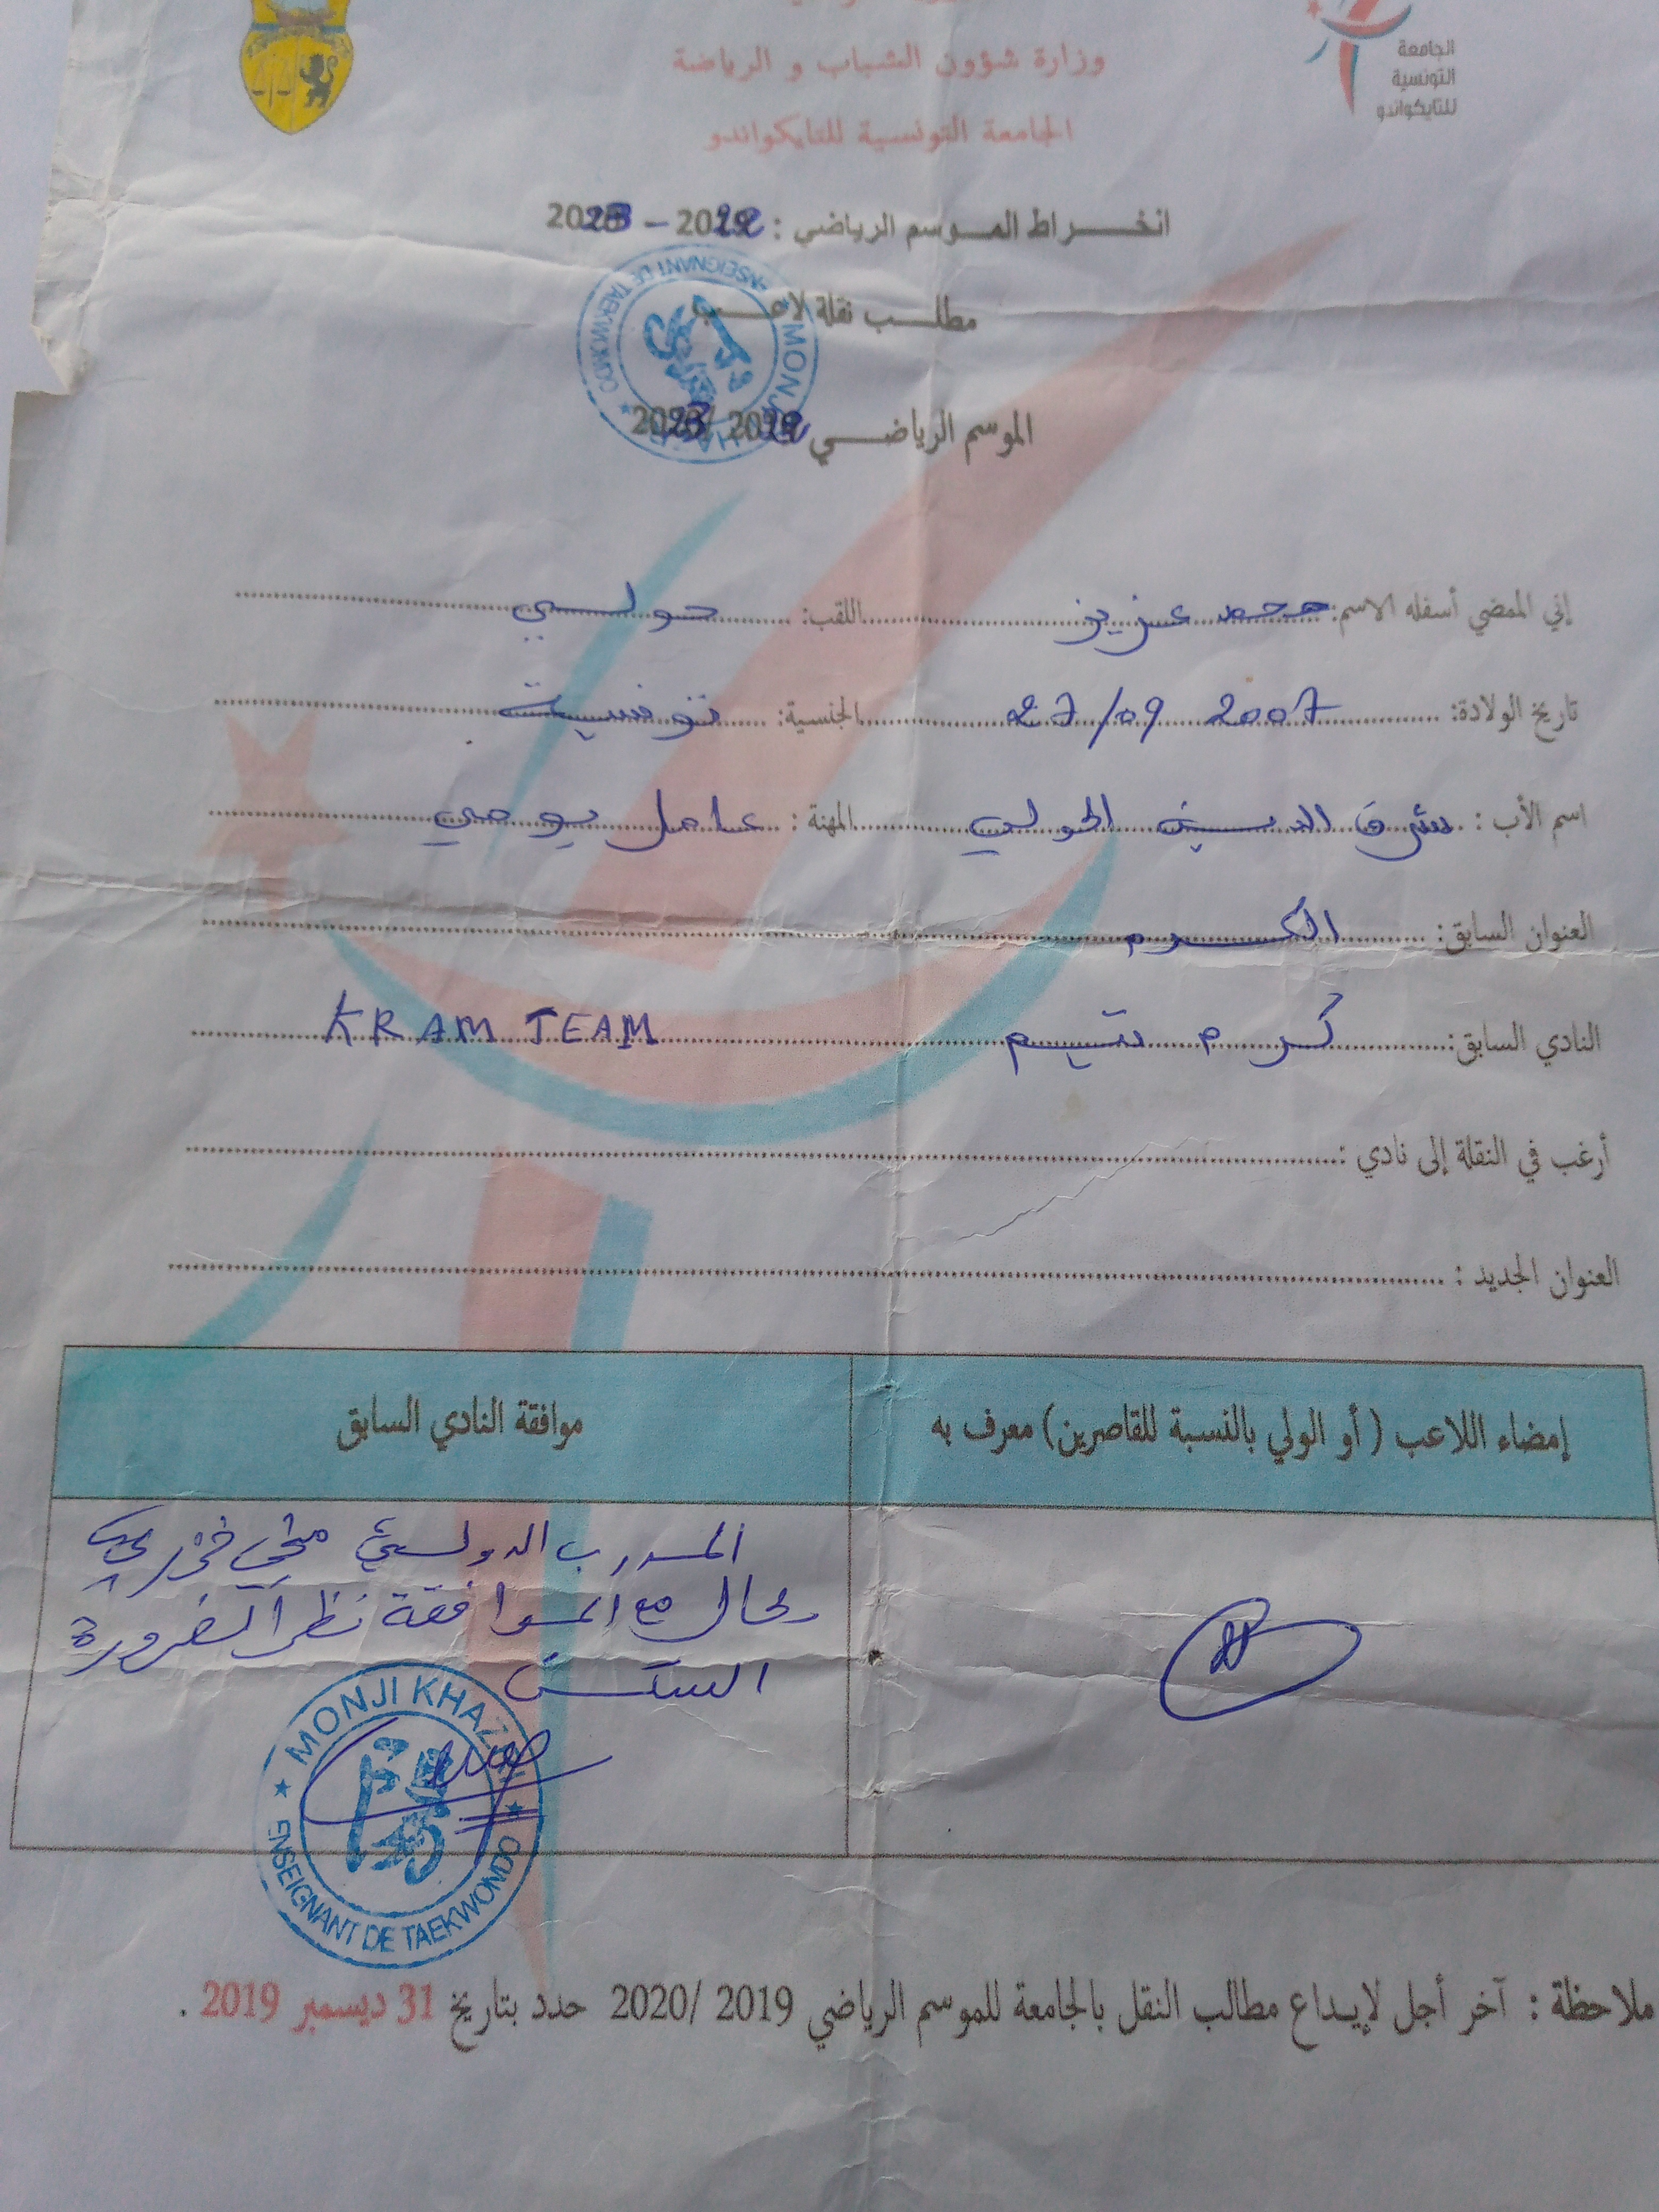 وزارة شؤون الشباب و الرياضة
الجامعة التونسية للتايكواندو
الجامعة
التونسية
للتايكواندو
انخراط الموسم الرياضي : 2022 – 2023
مطلب نقلة لاعب
الموسم الرياضي 2022 /2023
MONJI KHAZRI
ENSEIGNANT DE TAEKWONDO
إني الممضي أسفله الاسم: محمد عزيز اللقب: حولي
تاريخ الولادة: 27/09 2007 الجنسية: تونسية
اسم الأب : شرف الدين الحولي المهنة : عامل يومي
العنوان السابق: الكرم
النادي السابق: كرم تيم KRAM TEAM
أرغب في النقلة إلى نادي :
العنوان الجديد :
إمضاء اللاعب ( أو الولي بالنسبة للقاصرين) معرف به
موافقة النادي السابق
المدرب الدولي
يحال مع الموافقة نظرا لضرورة
السكن
MONJI KHAZRI
ENSEIGNANT DE TAEKWONDO
ملاحظة : آخر أجل لإيداع مطالب النقل بالجامعة للموسم الرياضي 2019 /2020 حدد بتاريخ 31 ديسمبر 2019 .